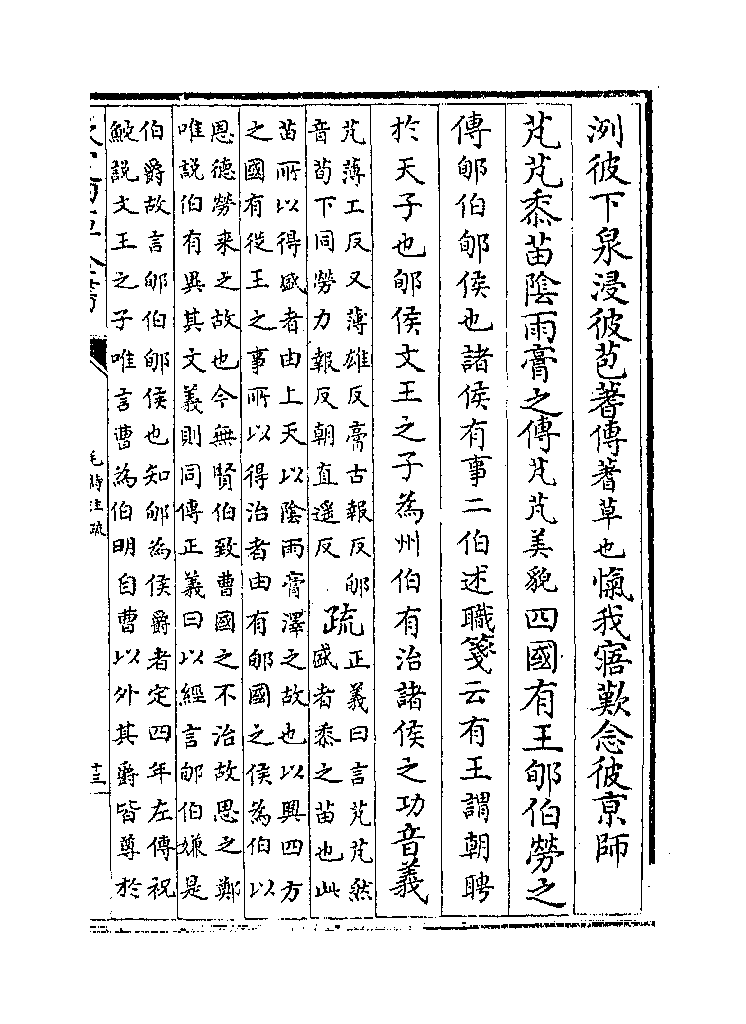 洌彼下泉浸彼苞蓍傳蓍草也愾我寤歎念彼京師
芃芃黍苗隂雨膏之傳芃芃美貌四國有王郇伯勞之
傳郇伯郇侯也諸侯有事二伯述職箋云有王謂朝聘
於天子也郇侯文王之子為州伯有治諸侯之功音義
芃薄工反又薄雄反膏古報反郇
音荀下同勞力報反朝直遥反
疏
正義曰言芃芃然
盛者黍之苗也此
苗所以得盛者由上天以隂雨膏澤之故也以興四方
之國有從王之事所以得治者由有郇國之侯為伯以
恩德勞来之故也今無賢伯致曹國之不治故思之鄭
唯說伯有異其文義則同傳正義曰以經言郇伯嫌是
伯爵故言郇伯郇侯也知郇為侯爵者定四年左傳祝
鮀說文王之子唯言曹為伯明自曹以外其爵皆尊於
欽定四庫全書
毛詩注疏
十三